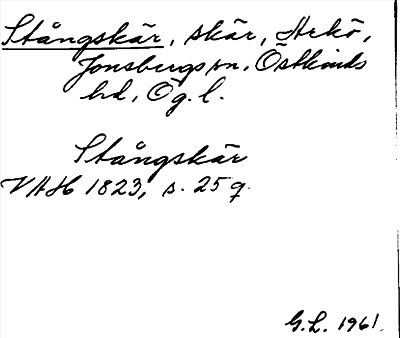 Stångskär, skär, Arkö,
Jonsbergs sn, Östkinds
hd, Ög. l.
Stångskär
VAH 1823, s. 259.
G.L. 1961.